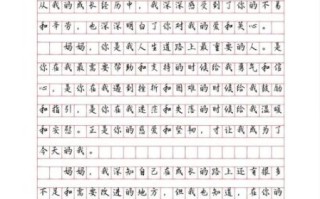 从我的成长经历中，我深深感受到了你的不易
和辛劳，也深深明白了你对我的爱和关心。
妈妈，你是我人生道路上最重要的人。是
你在我最需要帮助和支持的时候给我勇气和信
心，是你在我遇到挫折和困难的时候给我鼓励
和指引，是你在我迷茫和失落的时候给我温暖
和安慰。正是你的慈爱和坚韧，才让我成为了
今天的我。
妈妈，我深知自己在成长的路上还有很多
不足和需要改进的地方，但我也知道，在你的